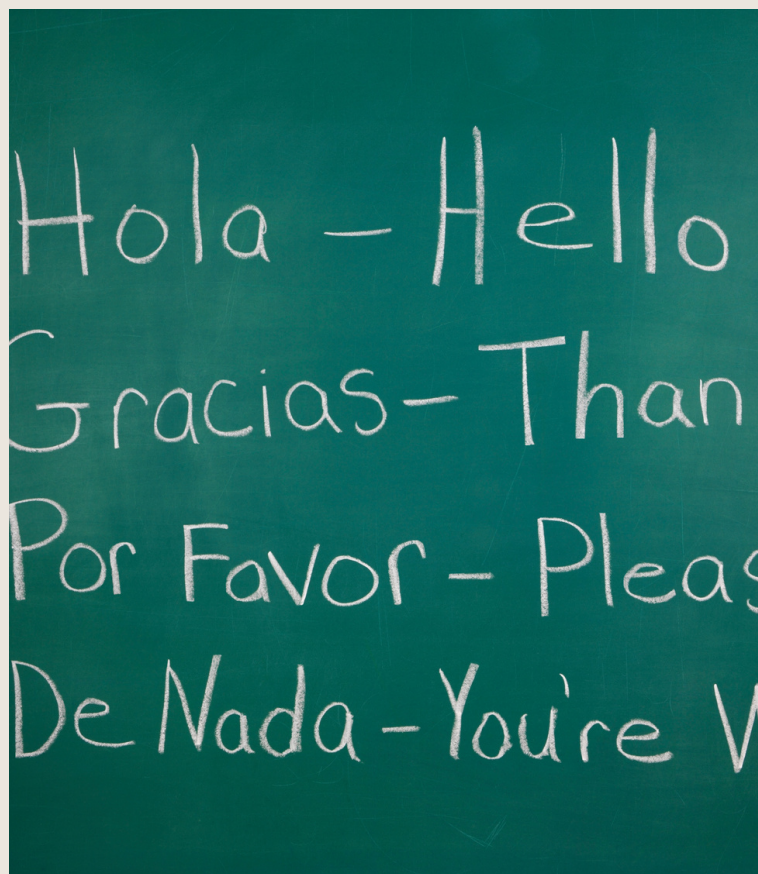 Hola - Hello
Gracias - Than
Por Favor - Pleas
De Nada - You're W